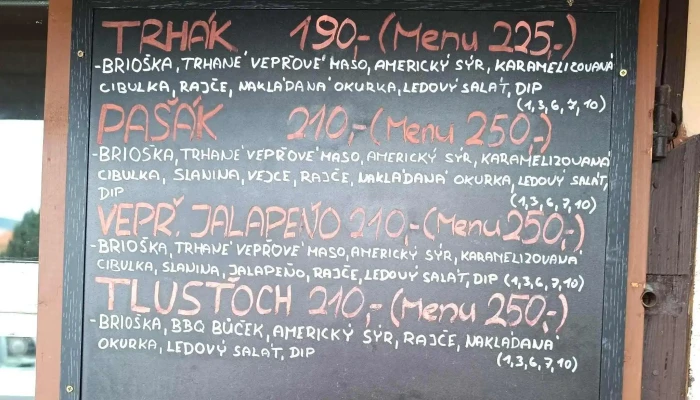 TRHÁK 190,- (Menu 225.-)
- BRIOŠKA, TRHANÉ VEPŘOVÉ MASO, AMERICKÝ SÝR, KARAMELIZOVANÁ
CIBULKA, RAJČE, NAKLÁDANÁ OKURKA, LEDOVÝ SALÁT, DIP
(1,3,6,7,10)
PAŠÁK 210,- (Menu 250,-)
- BRIOŠKA, TRHANÉ VEPŘOVÉ MASO, AMERICKÝ SÝR, KARAMELIZOVANÁ
CIBULKA, SLANINA, VEJCE, RAJČE, NAKLÁDANÁ OKURKA, LEDOVÝ SALÁT,
DIP
(1,3,6,7,10)
VEPŘ. JALAPEŇO 210,- (Menu 250,-)
- BRIOŠKA, TRHANÉ VEPŘOVÉ MASO, AMERICKÝ SÝR, KARAMELIZOVANÁ
CIBULKA, SLANINA, JALAPEŇO, RAJČE, LEDOVÝ SALÁT, DIP (1,3,6,7,10)
TLUSŤOCH 210,- (Menu 250,-)
- BRIOŠKA, BBQ BŮČEK, AMERICKÝ SÝR, RAJČE, NAKLÁDANÁ
OKURKA, LEDOVÝ SALÁT, DIP
(1,3,6,7,10)